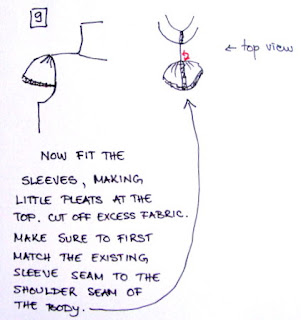 9
← top view
NOW FIT THE
SLEEVES, MAKING
LITTLE PLEATS AT THE
TOP. CUT OFF EXCESS FABRIC.
MAKE SURE TO FIRST
MATCH THE EXISTING
SLEEVE SEAM TO THE
SHOULDER SEAM OF
THE BODY.